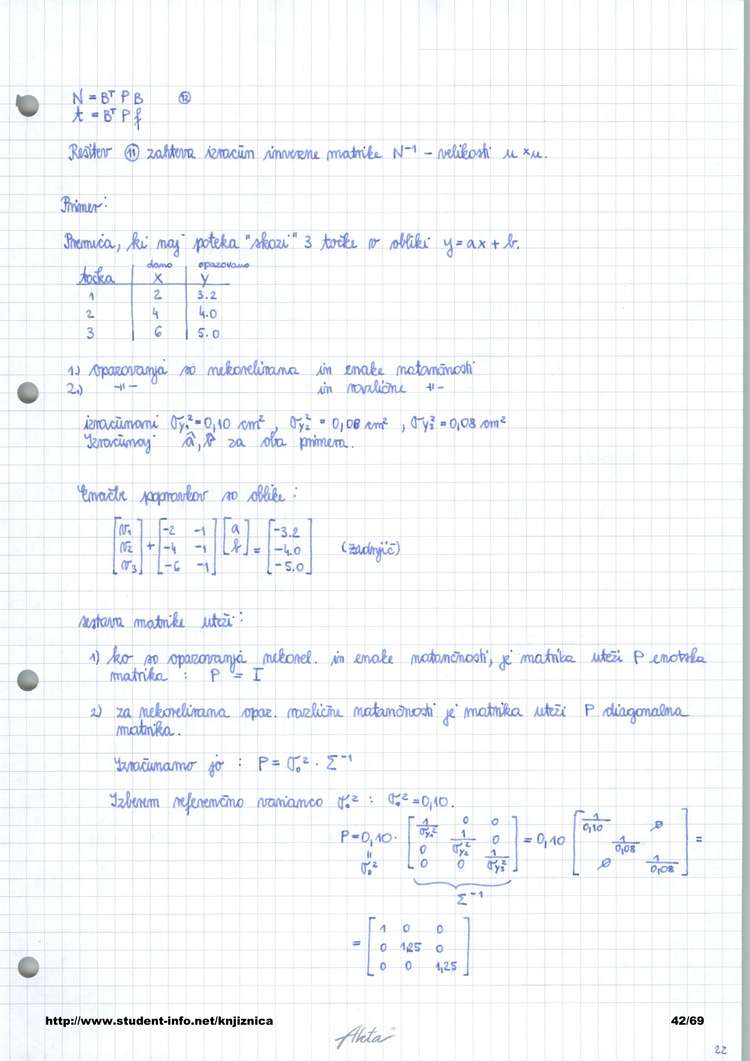 N = Bᵀ P B ⑫
t = Bᵀ P f
Rešitev ⑪ zahteva izračun inverzne matrike N⁻¹ - velikosti u × u.
Primer:
Premica, ki naj poteka "skozi" 3 točke v obliki y = ax + b.
dano opazovano
točka x y
1 2 3.2
2 4 4.0
3 6 5.0
1.) opazovanja so nekorelirana in enake natančnosti
2.) -||- in različne -||-
izračunani σy₁² = 0,10 cm², σy₂² = 0,08 cm², σy₃² = 0,08 cm²
Izračunaj â, b̂ za oba primera.
Enačbe popravkov so oblike:
[v₁ v₂ v₃] + [-2 -1; -4 -1; -6 -1] [a b] = [-3.2 -4.0 -5.0] (zadnjič)
sestava matrike uteži:
1) ko so opazovanja nekorel. in enake natančnosti, je matrika uteži P enotska
matrika : P = I
2) za nekorelirana opaz. različne natančnosti je matrika uteži P diagonalna
matrika.
Izračunamo jo : P = σ₀² · Σ⁻¹
Izberem referenčno varianco σ₀² : σ₀² = 0,10.
P = 0,10 · [1/σy₁² 0 0; 0 1/σy₂² 0; 0 0 1/σy₃²] = 0,10 [1/0,10 ∅; 1/0,08; ∅ 1/0,08] =
= σ₀² Σ⁻¹
= [1 0 0; 0 1,25 0; 0 0 1,25]
http://www.student-info.net/knjiznica 42/69
Akta
22